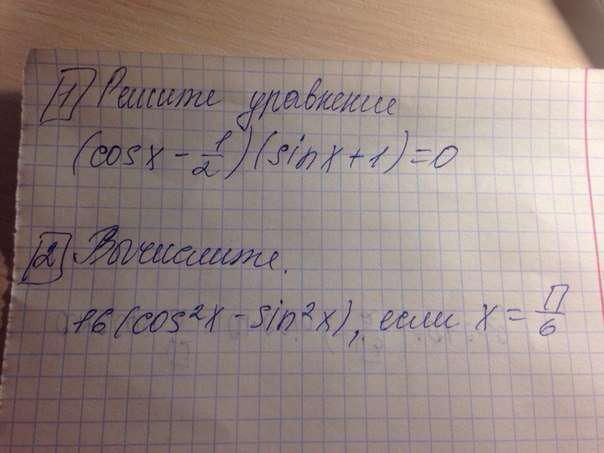 1 Решите уравнение
(cosx - 1/2)(sinx + 1) = 0
2 Вычислите.
16(cos²x - sin²x), если x = П/6